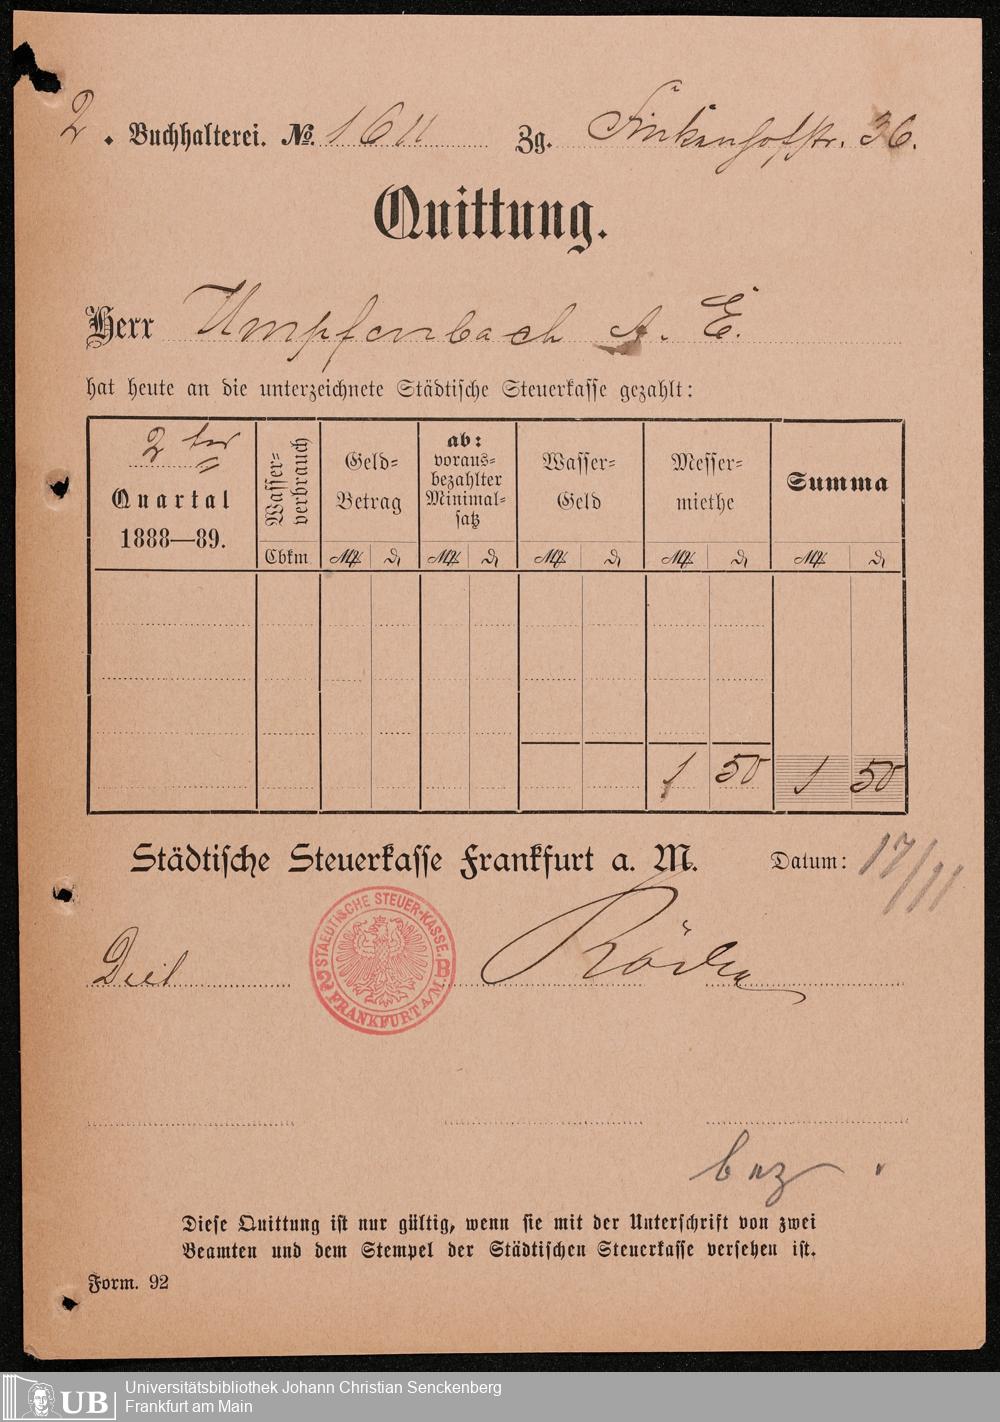 2. Buchhalterei. No. 1611 Zg. Finkenhofstr. 36.
Quittung.
Herr Umpfenbach A. E.
hat heute an die unterzeichnete Städtische Steuerkasse gezahlt:
2ter
Quartal
1888—89.
Wasser-
verbrauch
Cbkm
Geld-
Betrag
ab:
voraus-
bezahlter
Minimal-
satz
Wasser-
Geld
Messer-
miethe
Summa
1 50 1 50
Städtische Steuerkasse Frankfurt a. M. Datum: 17/11
STAEDTISCHE STEUER-KASSE. B
FRANKFURT A/M.
bez.
Diese Quittung ist nur gültig, wenn sie mit der Unterschrift von zwei
Beamten und dem Stempel der Städtischen Steuerkasse versehen ist.
Form. 92
UB
Universitätsbibliothek Johann Christian Senckenberg
Frankfurt am Main